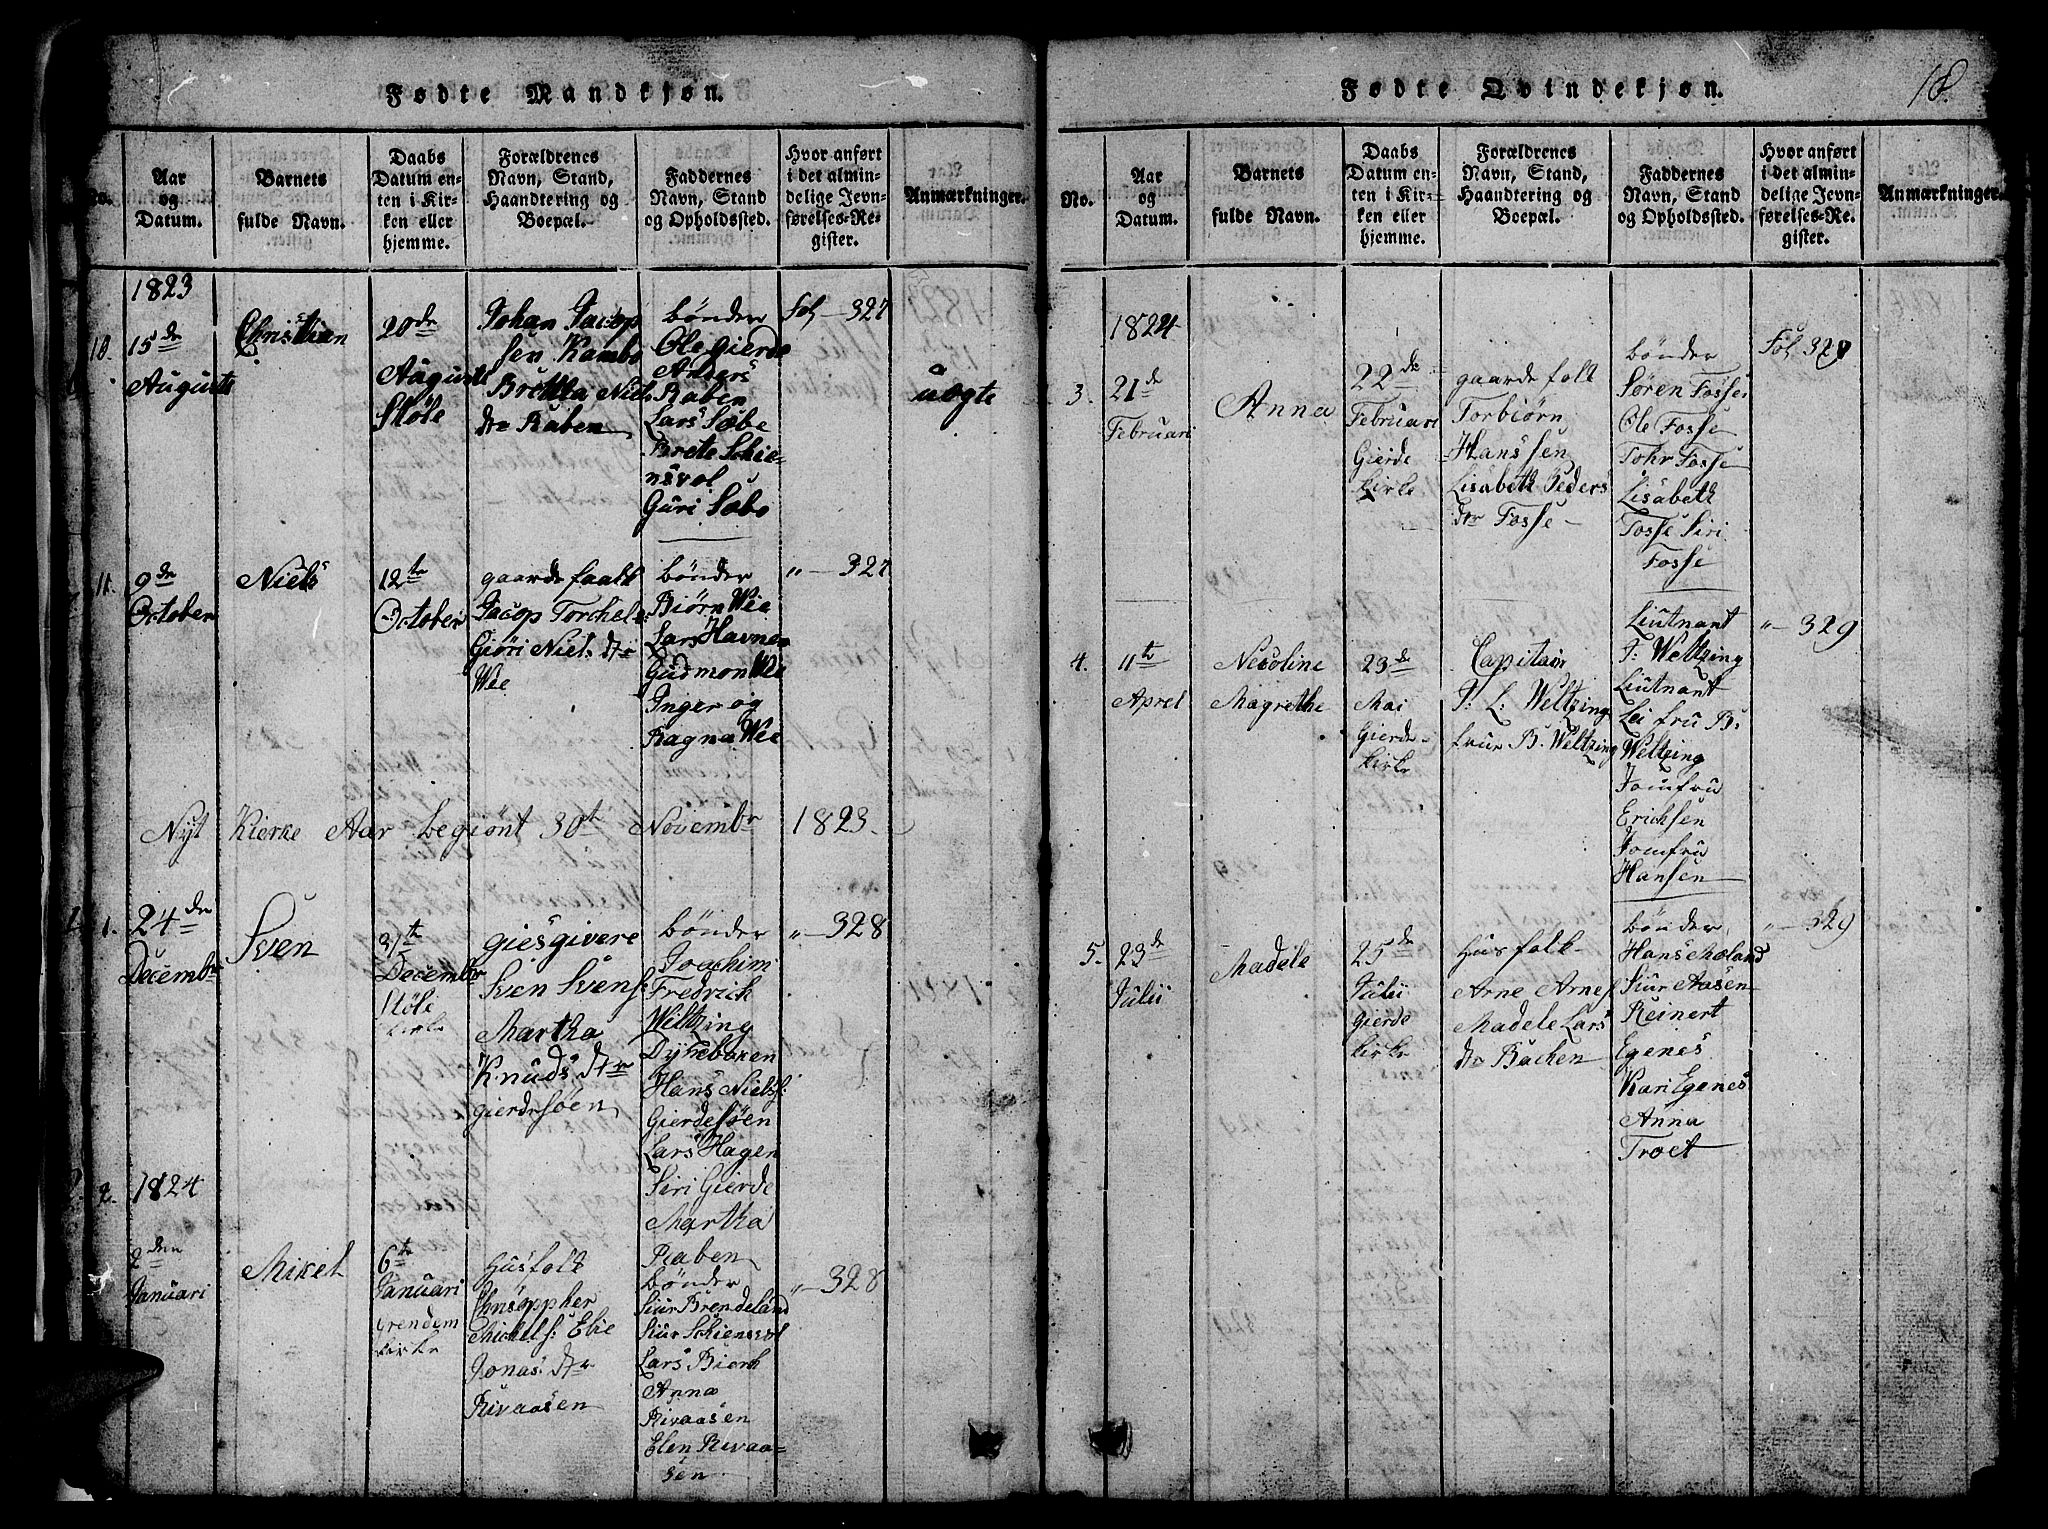 Fødte Mandkjøn.
No.
Aar
og
Datum.
Barnets
fulde Navn.
Daabs
Datum en-
ten i Kir-
ken eller
hjemme.
Forældrenes
Navn, Stand,
Haandtering og
Boepæl.
Faddernes
Navn, Stand
og Opholdssted.
Hvor anført
i det almin-
delige Jevn-
førelses-Re-
gister.
Anmærkninger.
1823
10.
15de
Augusts
Christian
20de
Augusts
Støle
Johan Jacop
sen Rambo
Niels
dtr Raben
bønder
Ole Gierde
Anders
Raben
Lars Sæbe
Brete Schie-
nsvol
Guri Sæbo
Fol - 327
uægte
11.
9de
October
Niels
12te
October
gaarde faalk
Jacop Torchels
Giøri Niels dtr
Wee
bønder
Biørn Wee
Lars Havnen
Gudmon Wee
Inger og
Ragna Wee
" - 327
Nyt Kierke Aar begiønt 30t Novembr 1823.
1.
24de
Decembr
Sven
31te
Decembr
Støle
kirke
giesgivere
Sven Svens
Martha
Knuds dtr
gierdesøen
bønder
Joachim
Fredrich
Weltzing
Dyneboxen
Hans Niels:
Gierdesøen
Lars Hagen
Siri Gierde
Martha
Raben
" - 328
2.
1824
2den
Januari
Mikel
6te
Januari
Grendem
kirke
Husfolk
Christoppher
Michels: Elie
Jonas: dtr
Rivaasen
bønder
Siur Brendeland
Siur Schiensvol
Lars Bierk
Anna
Rivaasen
Elen Rivaa-
sen
" - 328
Fødte Qvindekjøn.
18.
No.
Aar
og
Datum.
Barnets
fulde Navn.
Daabs
Datum en-
ten i Kir-
ken eller
hjemme.
Forældrenes
Navn, Stand,
Haandtering og
Boepæl.
Faddernes
Navn, Stand
og Opholdssted.
Hvor anført
i det almin-
delige Jevn-
førelses-Re-
gister.
Anmærkninger.
1824
3.
21de
Februari
Anna
22de
Februari
Gierde
kirke
gaarde folk
Torbiørn
Hanssen
Lisabeth Peders
dtr Fosse
bønder
Søren Fosse
Ole Fosse
Tohr Fosse
Lisabeth
Fosse Siri
Fosse
Fol 329
4.
11te
Aprel
Nicoline
Magrethe
23de
Mai
Gierde
kirke
Capitain
P: L: Weltzing
frue B. Weltzing
Liutnant
P: Weltzing
Liutnant
Lei fru B:
Weltzing
Jomfru
Erichsen
Jomfru
Hansen
" - 329
5.
23de
Julii
Madele
25de
Julii
Gierde
kirke
Husfolk
Arne Arnes
Madele Lars
dtr Bachen
bønder
Hans Moland
Siur Aasen
Reinert
Egenes
Kari Egenes
Anna
Troet
" - 329